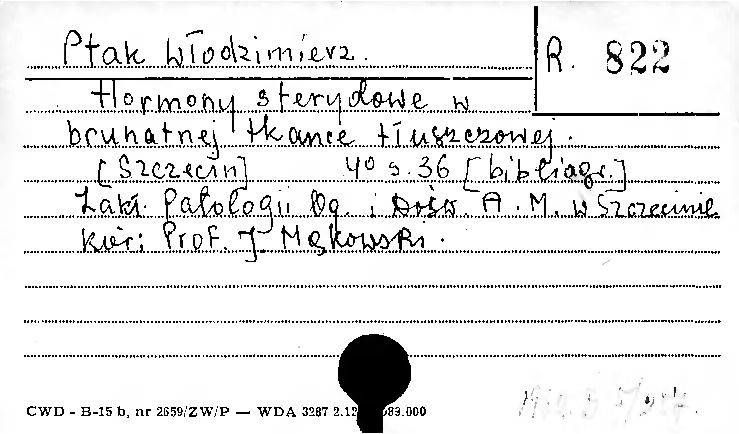 Ptak Włodzimierz.
R. 822
Hormony sterydowe w
bruhatnej tkance tłuszczowej.
[Szczecin] 4° s. 36 [bibliogr.]
Zakł. Patologii Og. i Dośw. A. M. w Szczecinie
kier: Prof. J. Mękowski.
CWD - B-15 b, nr 2659/ZW/P — WDA 3287 2.12 89.000